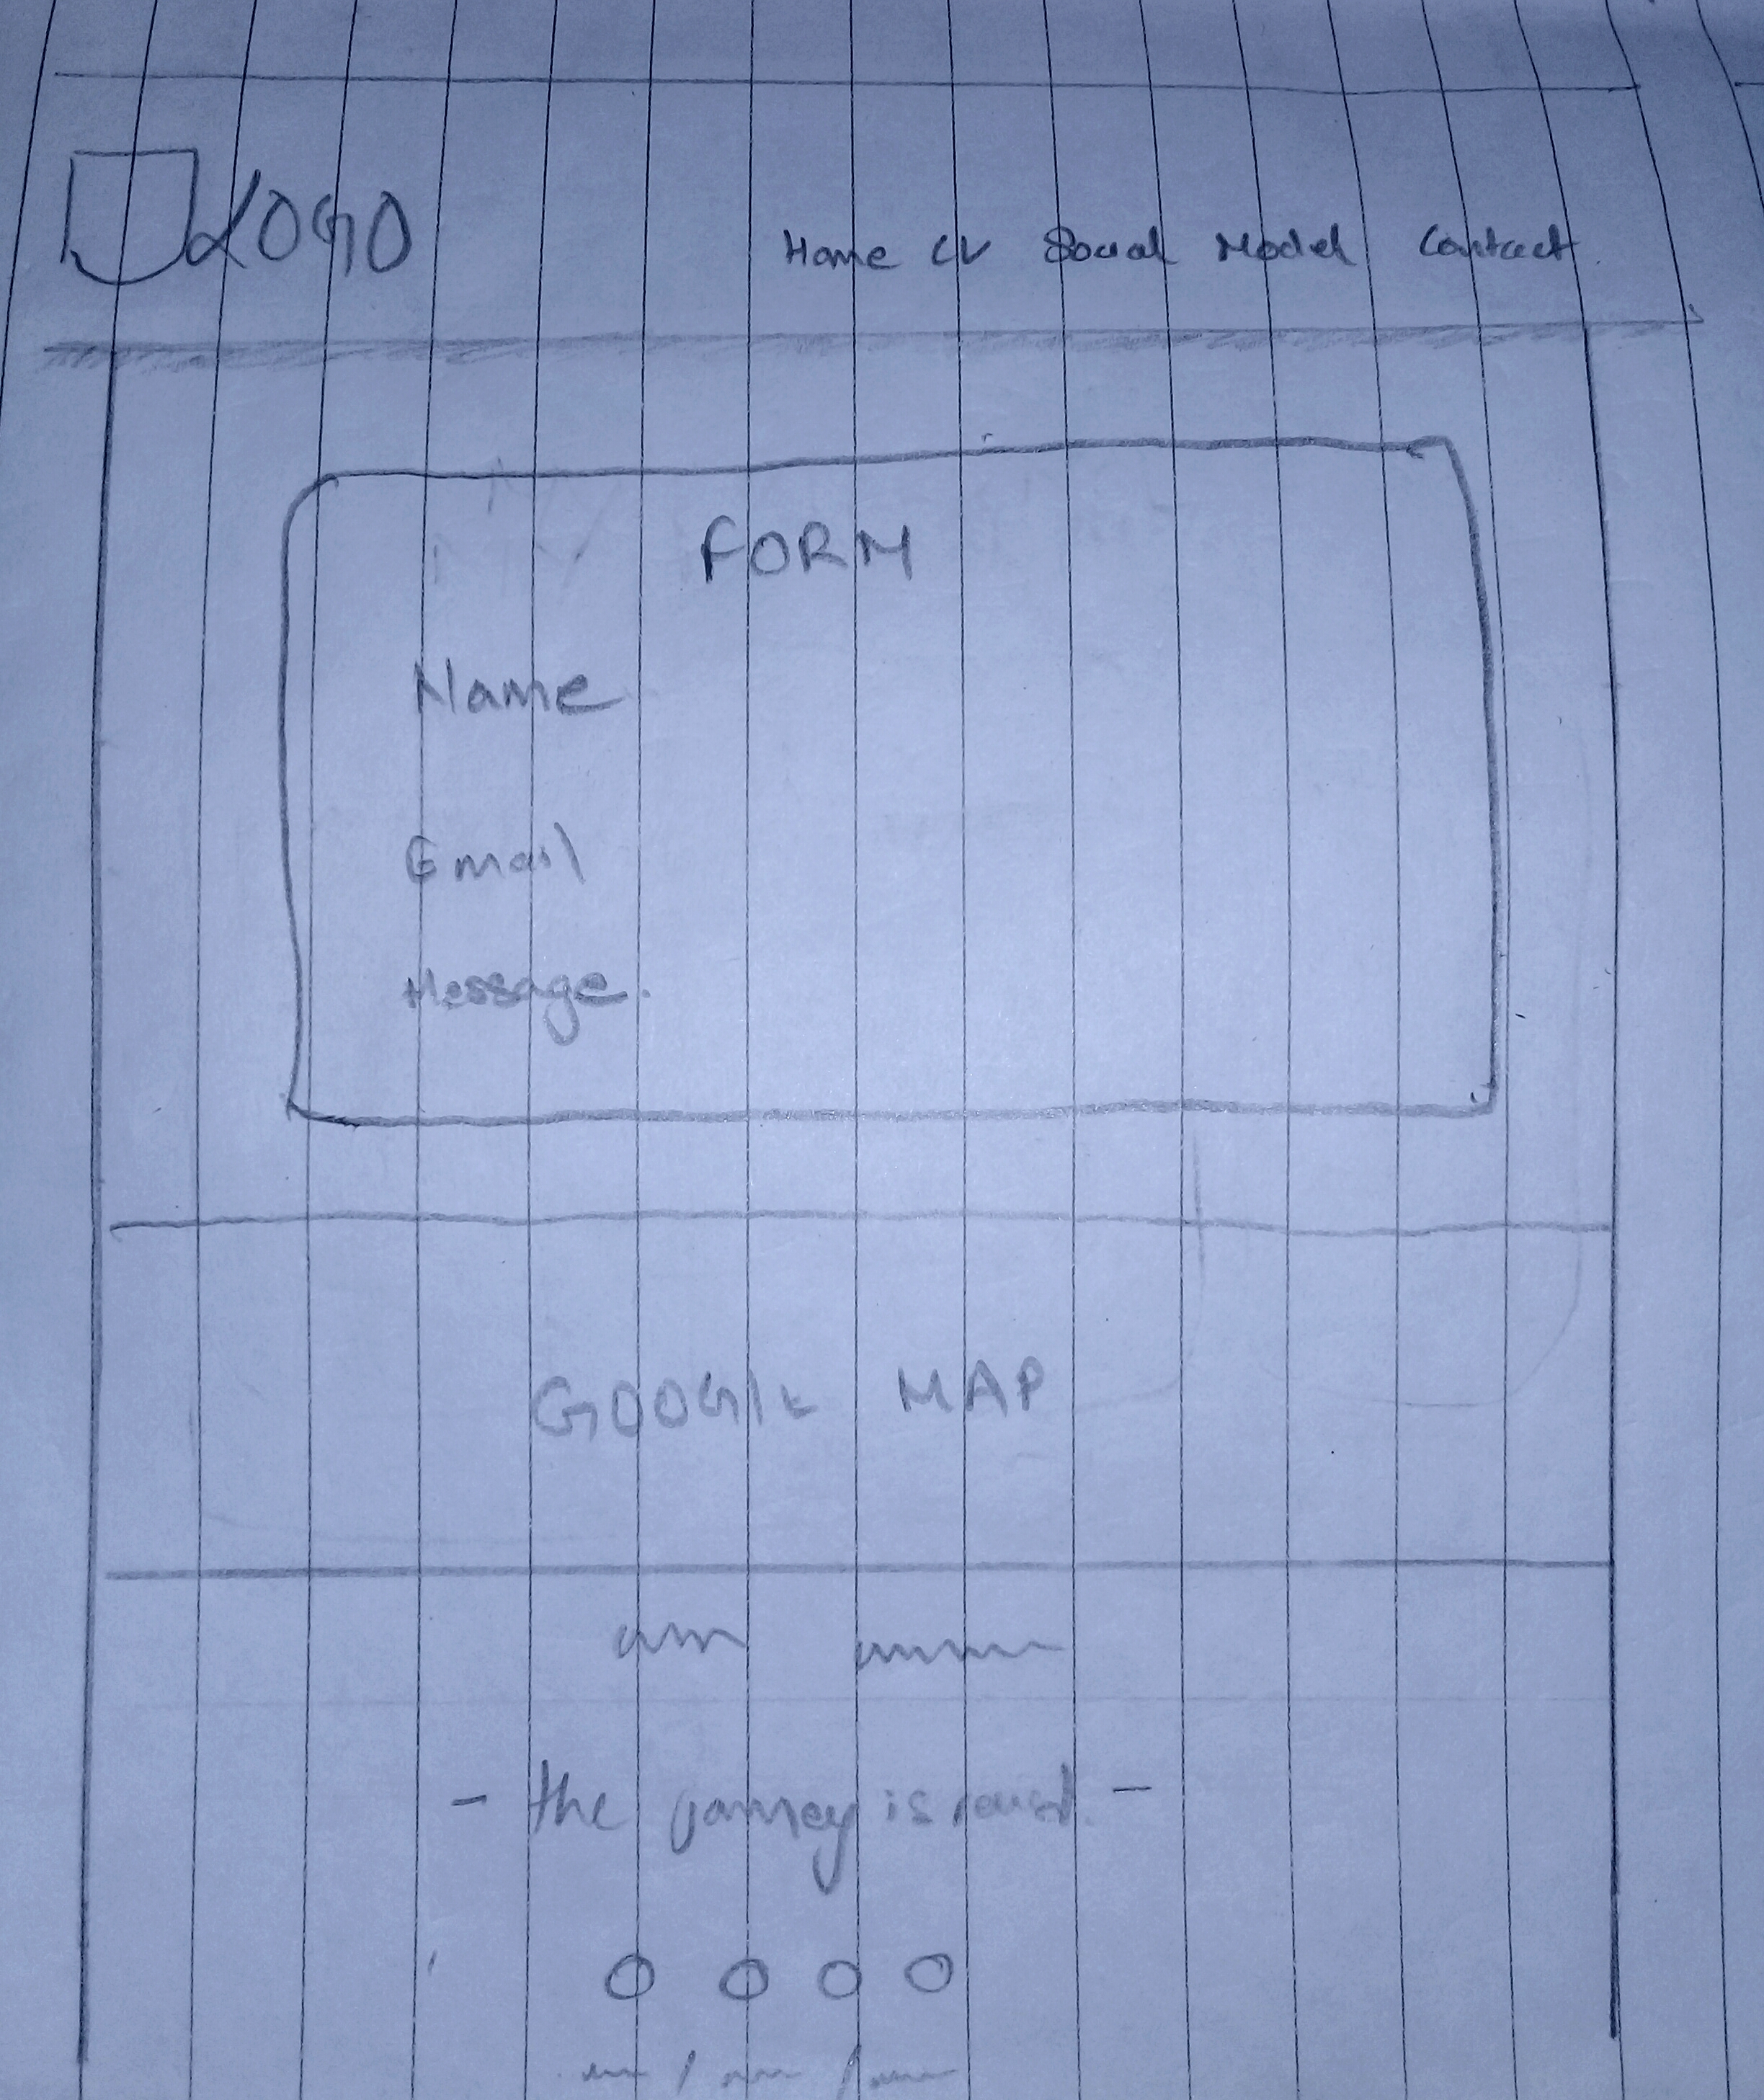 LOGO
Home CV Social Model Contact
FORM
Name
Email
Message.
GOOGLE MAP
- the is -